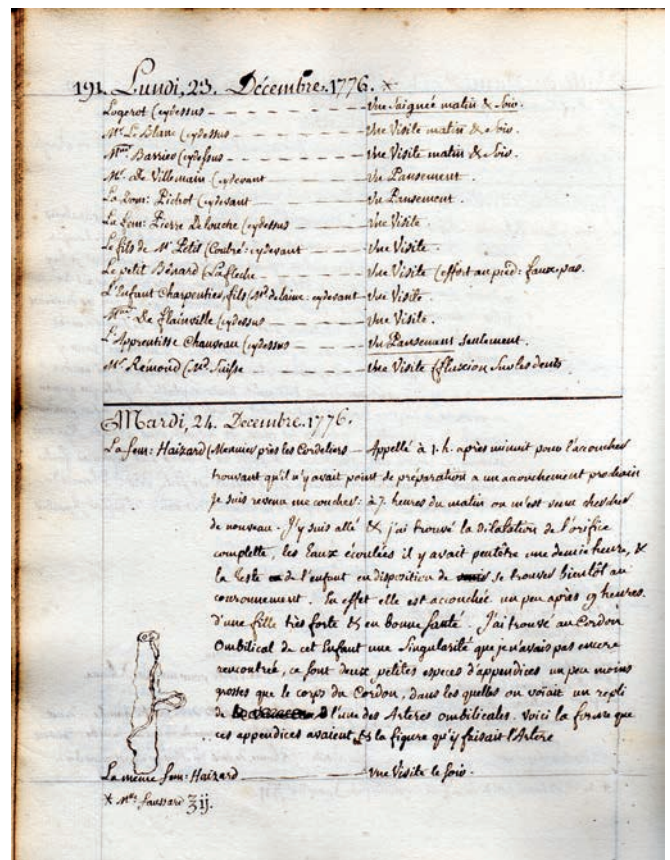 191. Lundi, 23. Décembre. 1776. *
Logerot (cydessus - - - Une Saignée matin & Soir.
Mr. Le Blanc (cydessus - - - Une Visite matin & Soir.
Mme. Barrier (cydessus - - - Une Visite matin & Soir.
Mr. de Villemain (cydevant - - - Un Pansement.
La Dom: Pichot (cydevant - - - Un Pansement.
La fem: Pierre Delouche (cydessus - - - Une Visite.
Le fils de Mr Petit (Coutre: cydevant - - - Une Visite.
Le petit Bénard (La fleche - - - Une Visite (effort au pied: faux pas.
L'Enfant Charpentier, fils (Md. de laine: cydevant - Une Visite.
De Flainville (cydessus - - - Une Visite.
L'Apprentisse Chauveau (cydessus - - - Un Pansement seulement.
Mr. Rémond (Md. Suisse - - - Une Visite (fluxion Sur les dents
Mardi, 24. Decembre. 1776.
La fem: Haizard (Meunier près les Cordeliers - Appellé à 1. h. après minuit pour l'acoucher
trouvant qu'il n'y avait point de préparation a un acouchement prochain
je suis revenu me coucher: à 7. heures du matin on m'est venu chercher
de nouveau. J'y suis allé & j'ai trouvé la dilatation de l'orifice
complette, les Eaux écoulées il y avait peutêtre une demie heure, &
la teste de l'enfant en disposition de se trouver bientôt au
couronnement. En effet elle est accouchée un peu après 9 heures.
d'une fille très forte & en bonne santé. J'ai trouvé au Cordon
Ombilical de cet Enfant une Singularité que je n'avais pas encore
rencontrée, ce sont deux petites especes d'appendices un peu moins
grosses que le corps du Cordon, dans les quelles on voiait un repli
de l'une des Arteres ombilicales. voici la forme que
ces appendices avaient & la figure qu'y faisait l'Artere
La même fem: Haizard - - - Une Visite le Soir.
* Saussard ʒij.